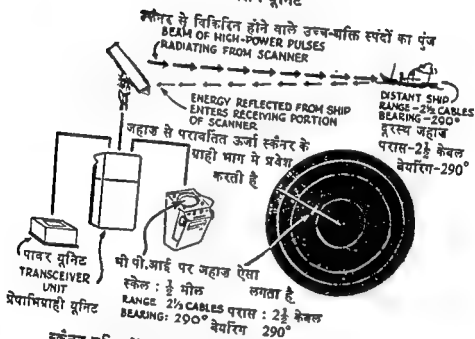 यूनिट
स्कैनर से विकिरित होने वाले उच्च-शक्ति स्पंदों का पुंज
BEAM OF HIGH-POWER PULSES
RADIATING FROM SCANNER
ENERGY REFLECTED FROM SHIP
ENTERS RECEIVING PORTION
OF SCANNER
जहाज से परावर्तित ऊर्जा स्कैनर के
ग्राही भाग मे प्रवेश
करती है
DISTANT SHIP
RANGE-2½ CABLES
BEARING-290°
दूरस्थ जहाज
परास-2½ केबल
बेयरिंग-290°
पावर यूनिट
TRANSCEIVER
UNIT
प्रेषाभिग्राही यूनिट
पी.पी.आई पर जहाज ऐसा
लगता है
स्केल : ½ मील
RANGE 2½ CABLES परास : 2½ केबल
BEARING: 290° बेयरिंग 290°